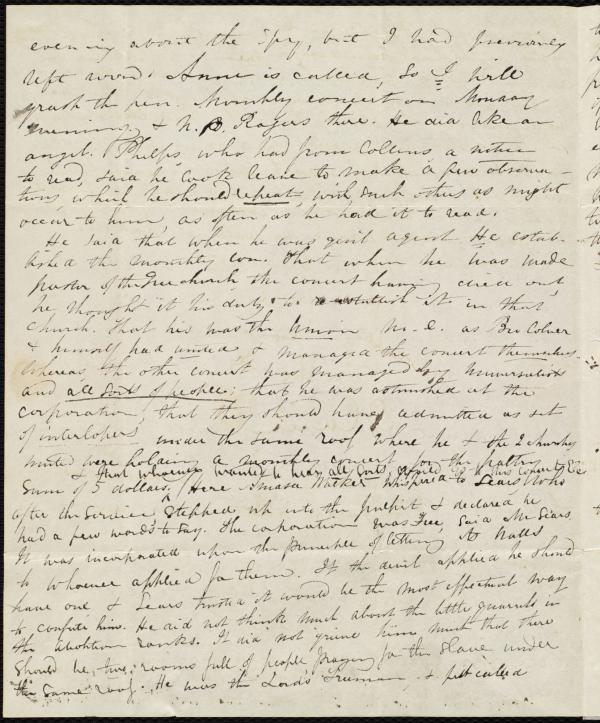 evening about the Spy, but I had previously
left word. Anne is called, so I will
grasp the pen. Monthly concert on Monday
evening, & N. P. Rogers there. He did like an
angel. Phelps, who had from Collins a notice
to read, said he took leave to make a few observa-
tions which he should repeat, with such others as might
occur to him, as often as he had it to read.
He said that when he was genl agent He estab-
lished the monthly con. that when he was made
pastor of the Free church the concert having died out,
he thought it his duty to establish it in that
church. that his was the Union M. C. as Bro Colver
& himself had united & managed the concert themselves.
Whereas the other concert was managed by Universalists
and all sorts of people; that he was astonished at the
corporation, that they should have admitted a set
of interlopers under the same roof where he & the 2 churches
united were holding a monthly concert, for the paltry
& that whoever wanted to hear all sorts, would go to this concert &c
sum of 5 dollars. Here Amasa Walker whispered to Sears who
after the service stepped up into the pulpit & declared he
had a few words to say. The corporation was Free, said Mr Sears
It was incorporated upon the principle of letting its Halls
to whoever applied for them. If the devil applied he should
have one & Sears trusted it would be the most effectual way
to confute him. He did not think much about the little quarrels in
the abolition ranks. It did not grieve him much that there
should be two rooms full of people praying for the slave under
the same roof. He was the Lord's freeman, & felt called